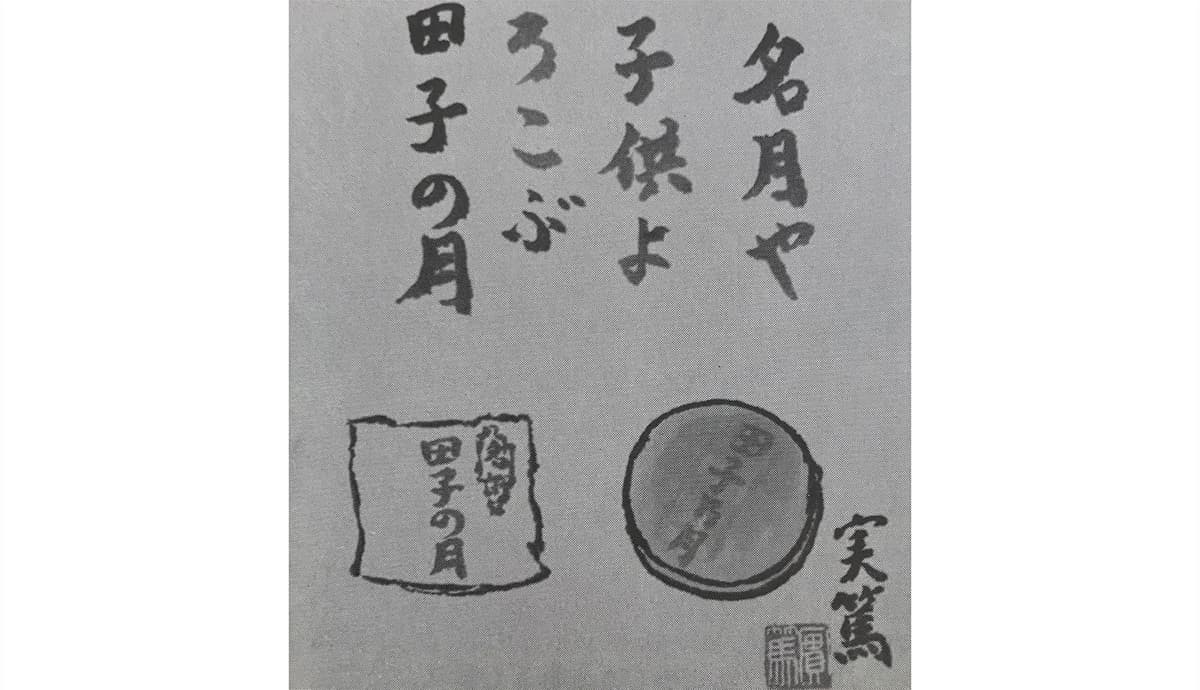 名月や
子供よ
ろこぶ
田子の月
田子乃月
田子の月
実篤
實篤